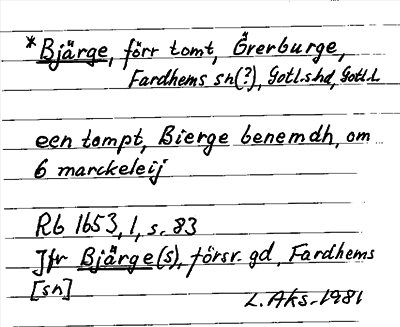 *Bjärge, förr tomt, Örerburge,
Fardhems sn(?), Gotl.s hd, Gotl.L
een tompt, Bierge benemdh, om
6 marckeleij
Rb 1653, 1, s. 83
Jfr Bjärge(s), försv. gd, Fardhems
[sn]
L.Aks. 1981